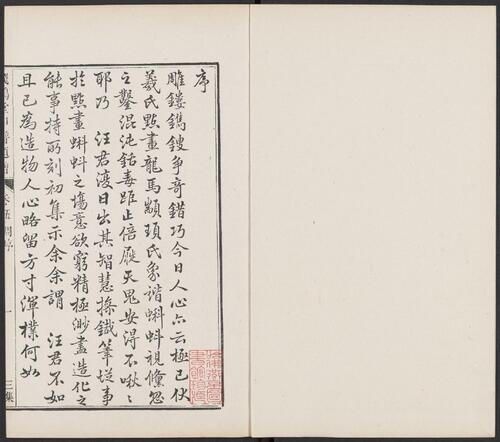 序
雕鏤鐫鎪爭奇錯巧今日人心亦云極已伏
羲氏點畫龍馬顓頊氏象諧蝌蚪視儵忽
之鑿混沌銛毒距止倍屣天鬼安得不啾〻
耶乃　汪君復日出其智慧搽鐵筆從事
於點畫蝌蚪之塲意欲窮精極渺盡造化之
能事持所刻初集示余余謂　汪君不如
且已為造物人心略留方寸渾樸何如
卷五
序
一
三集